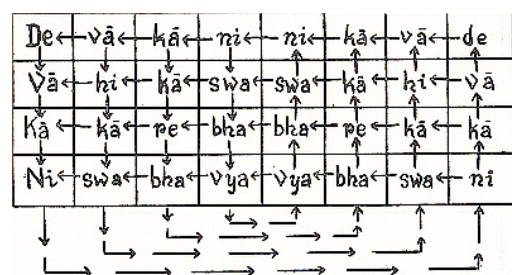 De vā kā ni ni kā vā de
Vā hi kā swa swa kā hi vā
Kā kā re bha bha re kā kā
Ni swa bha vya vya bha swa ni